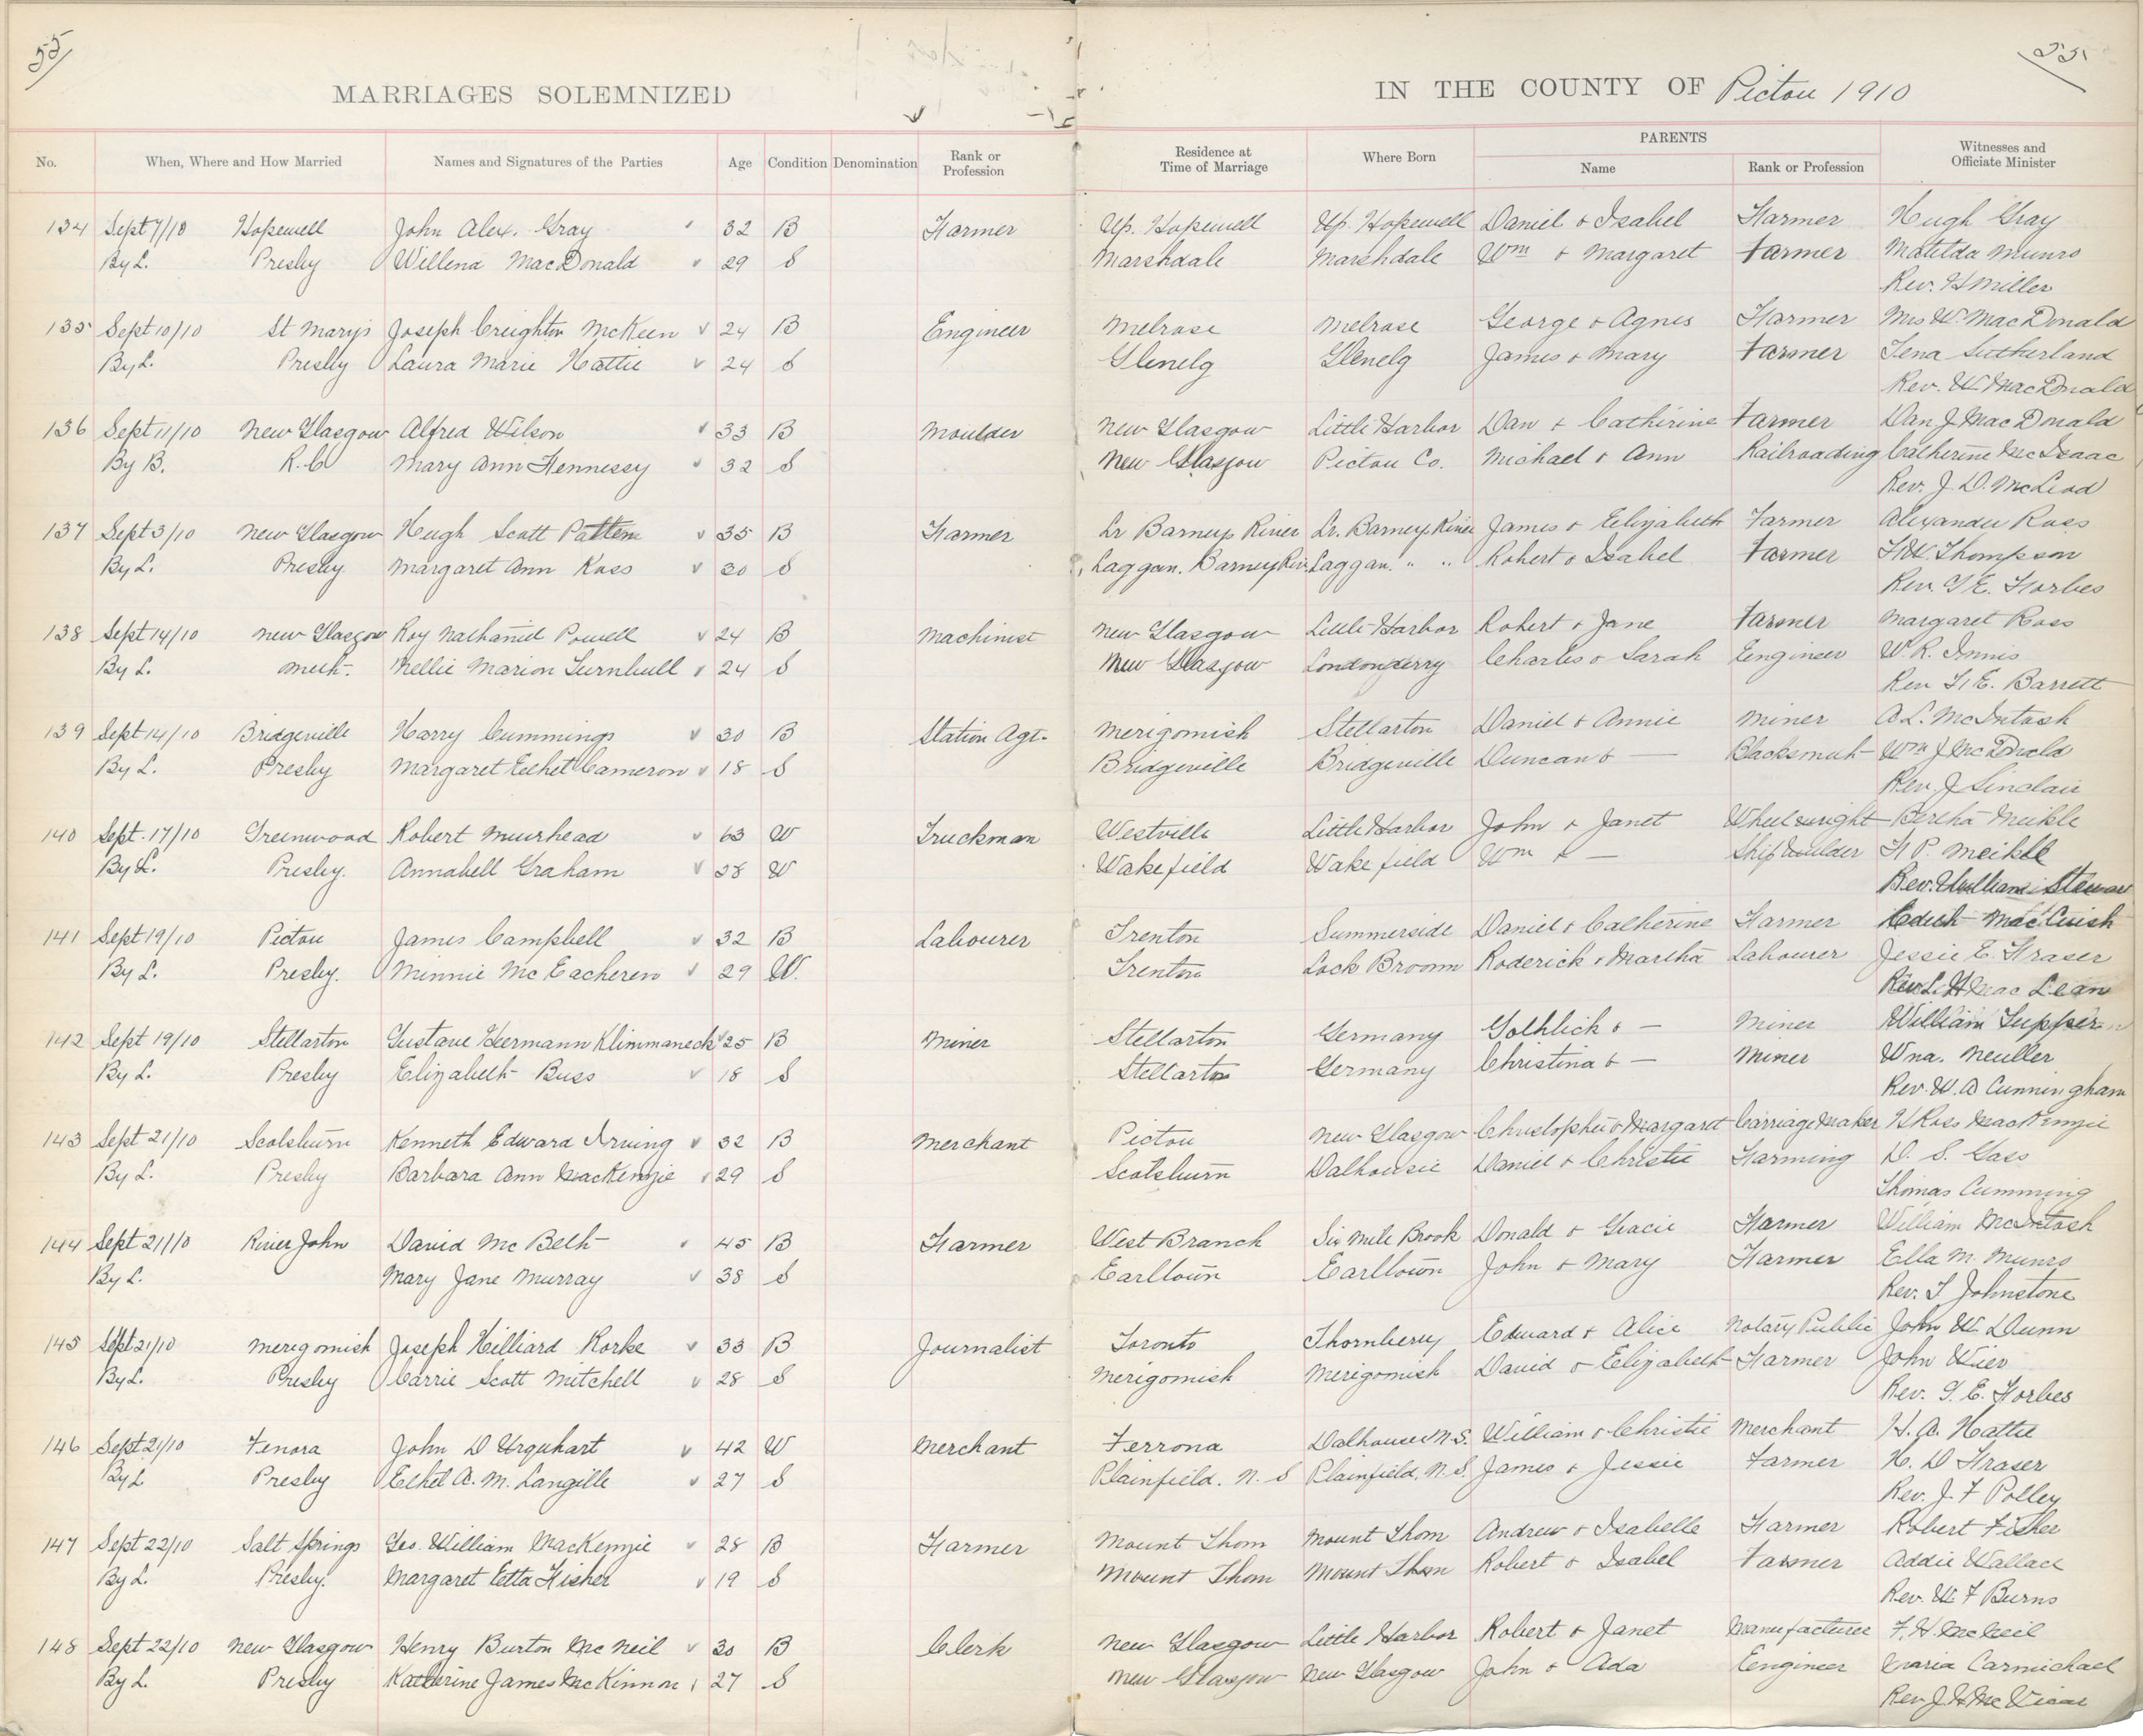 55
55
MARRIAGES SOLEMNIZED
IN THE COUNTY OF Pictou 1910
No. When, Where and How Married Names and Signatures of the Parties Age Condition Denomination Rank or Profession Residence at Time of Marriage Where Born PARENTS Name Rank or Profession Witnesses and Officiate Minister
134 Sept 7/10 Hopewell John Alex. Gray 32 B Farmer Up. Hopewell Up. Hopewell Daniel & Isabel Farmer Hugh Gray
By L. Presby Willena MacDonald 29 S Marshdale Marshdale Wm & Margaret Farmer Matilda Munro
Rev. H Miller
135 Sept 10/10 St Marys Joseph Creighton McKeen 24 B Engineer Melrose Melrose George & Agnes Farmer Mrs W. MacDonald
By L. Presby Laura Marie Hattie 24 S Glenelg Glenelg James & Mary Farmer Tena Sutherland
Rev. W MacDonald
136 Sept 11/10 New Glasgow Alfred Wilson 33 B Moulder New Glasgow Little Harbor Dan & Catherine Farmer Dan J MacDonald
By B. R.C Mary Ann Hennessy 32 S New Glasgow Pictou Co. Michael & Ann Railroading Catherine McIsaac
Rev. J. D. McLeod
137 Sept 3/10 New Glasgow Hugh Scott Patten 35 B Farmer Lr Barneys River Lr. Barneys River James & Elizabeth Farmer Alexander Ross
By L. Presby. Margaret Ann Ross 30 S Laggan. Barneys Riv Laggan. " " Robert & Isabel Farmer Thompson
Rev. G E. Forbes
138 Sept 14/10 New Glasgow Roy Nathaniel Powell 24 B Machinist New Glasgow Little Harbor Robert & Jane Farmer Margaret Ross
By L. Meth. Nellie Marion Turnbull 24 S New Glasgow Londonderry Charles & Sarah Engineer W. R. Innis
Rev F. E. Barrett
139 Sept 14/10 Bridgeville Harry Cummings 30 B Station Agt. Merigomish Stellarton Daniel & Annie Miner A. L. McIntosh
By L. Presby Margaret Ethel Cameron 18 S Bridgeville Bridgeville Duncan & — Blacksmith Wm J McDonald
Rev. J Sinclair
140 Sept. 17/10 Greenwood Robert Muirhead 63 W Truckman Westville Little Harbor John & Janet Wheelwright Bertha Meikle
By L. Presby. Annabell Graham 38 W Wakefield Wakefield Wm & — Ship builder P. Meikle
Rev. William Stewart
141 Sept 19/10 Pictou James Campbell 32 B Labourer Trenton Summerside Daniel & Catherine Farmer Edith MacCuish
By L. Presby. Minnie McEacheren 29 W. Trenton Lock Broom Roderick & Martha Labourer Jessie E. Fraser
Rev. MacLean
142 Sept 19/10 Stellarton Gustave Heermann Klimmaneck 25 B Miner Stellarton Germany Gothlick & — Miner William
By L. Presby Elizabeth Buss 18 S Stellarton Germany Christina & — Miner Wna. Neuller
Rev. W. A Cunningham
143 Sept 21/10 Scotsburn Kenneth Edward Irving 32 B Merchant Pictou New Glasgow Christopher & Margaret Carriage Maker H Ross MacKenzie
By L. Presby Barbara Ann MacKenzie 29 S Scotsburn Dalhousie Daniel & Christie Farming D. S. Gass
Thomas Cumming
144 Sept 21/10 River John David McBeth 45 B Farmer West Branch Six Mile Brook Donald & Gracie Farmer William McIntosh
By L. Mary Jane Murray 38 S Earltown Earltown John & Mary Farmer Ella M. Munro
Rev. T Johnstone
145 Sept 21/10 Merigomish Joseph Hilliard Rorke 33 B Journalist Toronto Thornbery Edward & Alice Notary Public John W. Dunn
By L. Presby Carrie Scott Mitchell 28 S Merigomish Merigomish David & Elizabeth Farmer John Wier
Rev. G. E. Forbes
146 Sept 21/10 Fenora John D Urquhart 42 W Merchant Ferrona Dalhousie N.S. William & Christie Merchant H. A. Hattie
By L Presby Ethel A. M. Langille 27 S Plainfield. N. S Plainfield, N. S. James & Jessie Farmer H. D Fraser
Rev. J. F Polley
147 Sept 22/10 Salt Springs Geo. William MacKenzie 28 B Farmer Mount Thom Mount Thom Andrew & Isabelle Farmer Robert Fisher
By L. Presby. Margaret Etta Fisher 19 S Mount Thom Mount Thom Robert & Isabel Farmer Addie Wallace
Rev. W. F Burns
148 Sept 22/10 New Glasgow Henry Burton McNeil 30 B Clerk New Glasgow Little Harbor Robert & Janet Manufacturer F. H. McNeil
By L. Presby Katherine James McKinnon 27 S New Glasgow New Glasgow John & Ada Engineer Maria Carmichael
Rev. J. H McVicar